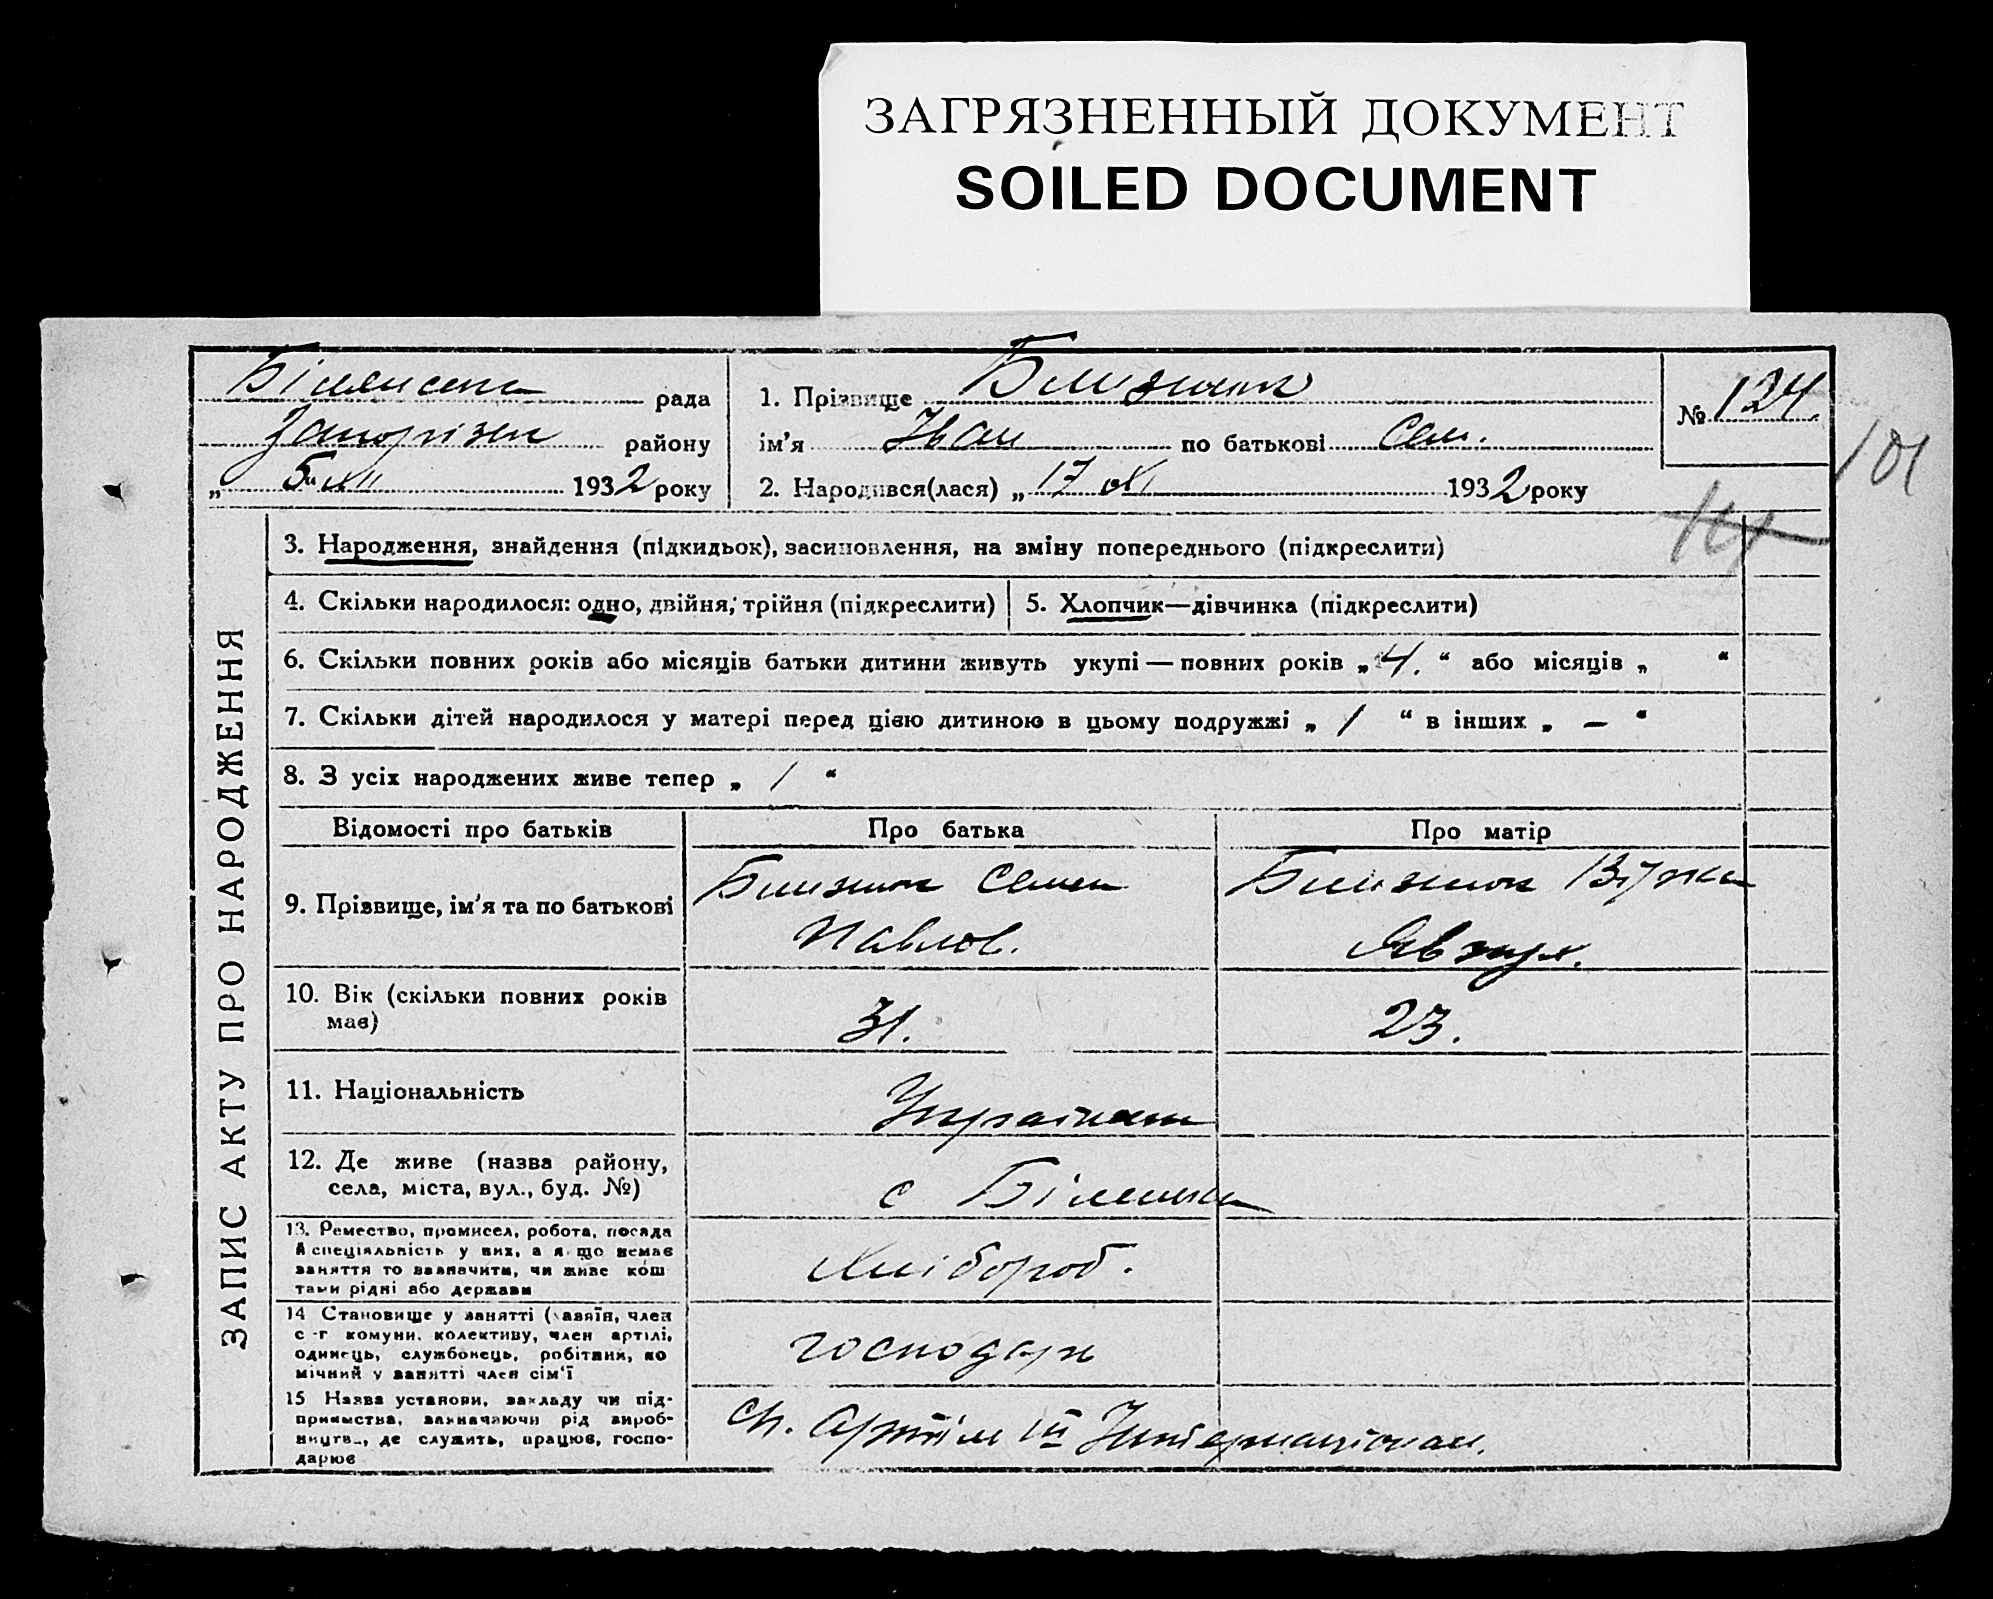 ЗАГРЯЗНЕННЫЙ ДОКУМЕНТ
SOILED DOCUMENT
рада
району
„ 5 " XII 1932 року
1. Прізвище
ім'я Іван по батькові Сем.
2. Народився(лася) „ 17 XI 1932 року
№ 124.
101
ЗАПИС АКТУ ПРО НАРОДЖЕННЯ
3. Народження, знайдення (підкидьок), засиновлення, на зміну попереднього (підкреслити)
4. Скільки народилося: одно, двійня, трійня (підкреслити)
5. Хлопчик—дівчинка (підкреслити)
6. Скільки повних років або місяців батьки дитини живуть укупі — повних років „ 4. “ або місяців „ “
7. Скільки дітей народилося у матері перед цією дитиною в цьому подружжі „ 1 “ в інших „ – “
8. З усіх народжених живе тепер „ 1 “
Відомості про батьків
Про батька
Про матір
9. Прізвище, ім'я та по батькові
Семен
Павлов.
10. Вік (скільки повних років
має)
31.
23.
11. Національність
12. Де живе (назва району,
села, міста, вул., буд. №)
с
13. Ремество, промисел, робота, посада
й спеціяльність у них, а якщо немає
заняття то зазначити, чи живе кош
тами рідні або держави
Хлібороб.
14 Становище у занятті (хазяїн, член
с-г комуни, колективу, член артілі,
одинець, службовець, робітник, по
мічний у занятті член сім'ї
господар
15 Назва установи, закладу чи під-
приємства, зазначаючи рід вироб-
ництв., де служить, працює, госпо-
дарює
Артіл III Інтернаціонал.